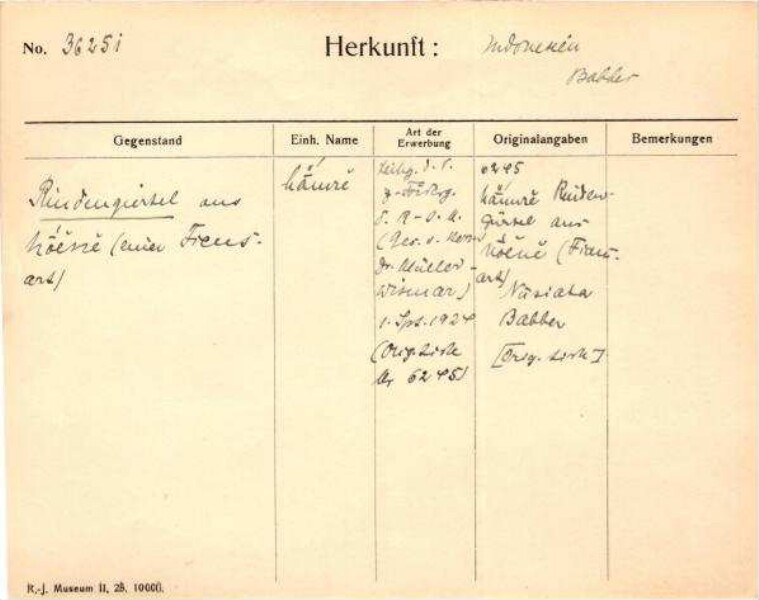 No. 36251 Herkunft: Indonesien
Babber
Gegenstand Einh. Name Art der Erwerbung Originalangaben Bemerkungen
Rindengürtel aus
(einer Ficus-
art)
(Ges. v. Herrn
Dr. Müller
Wismar)
1. Spt. 1924
(Orig. Liste
Nr 6245)
6245
Rinden-
gürtel aus
(Ficus-
art)
Babber
[Orig. Liste]
R.-J. Museum II, 28, 10000.